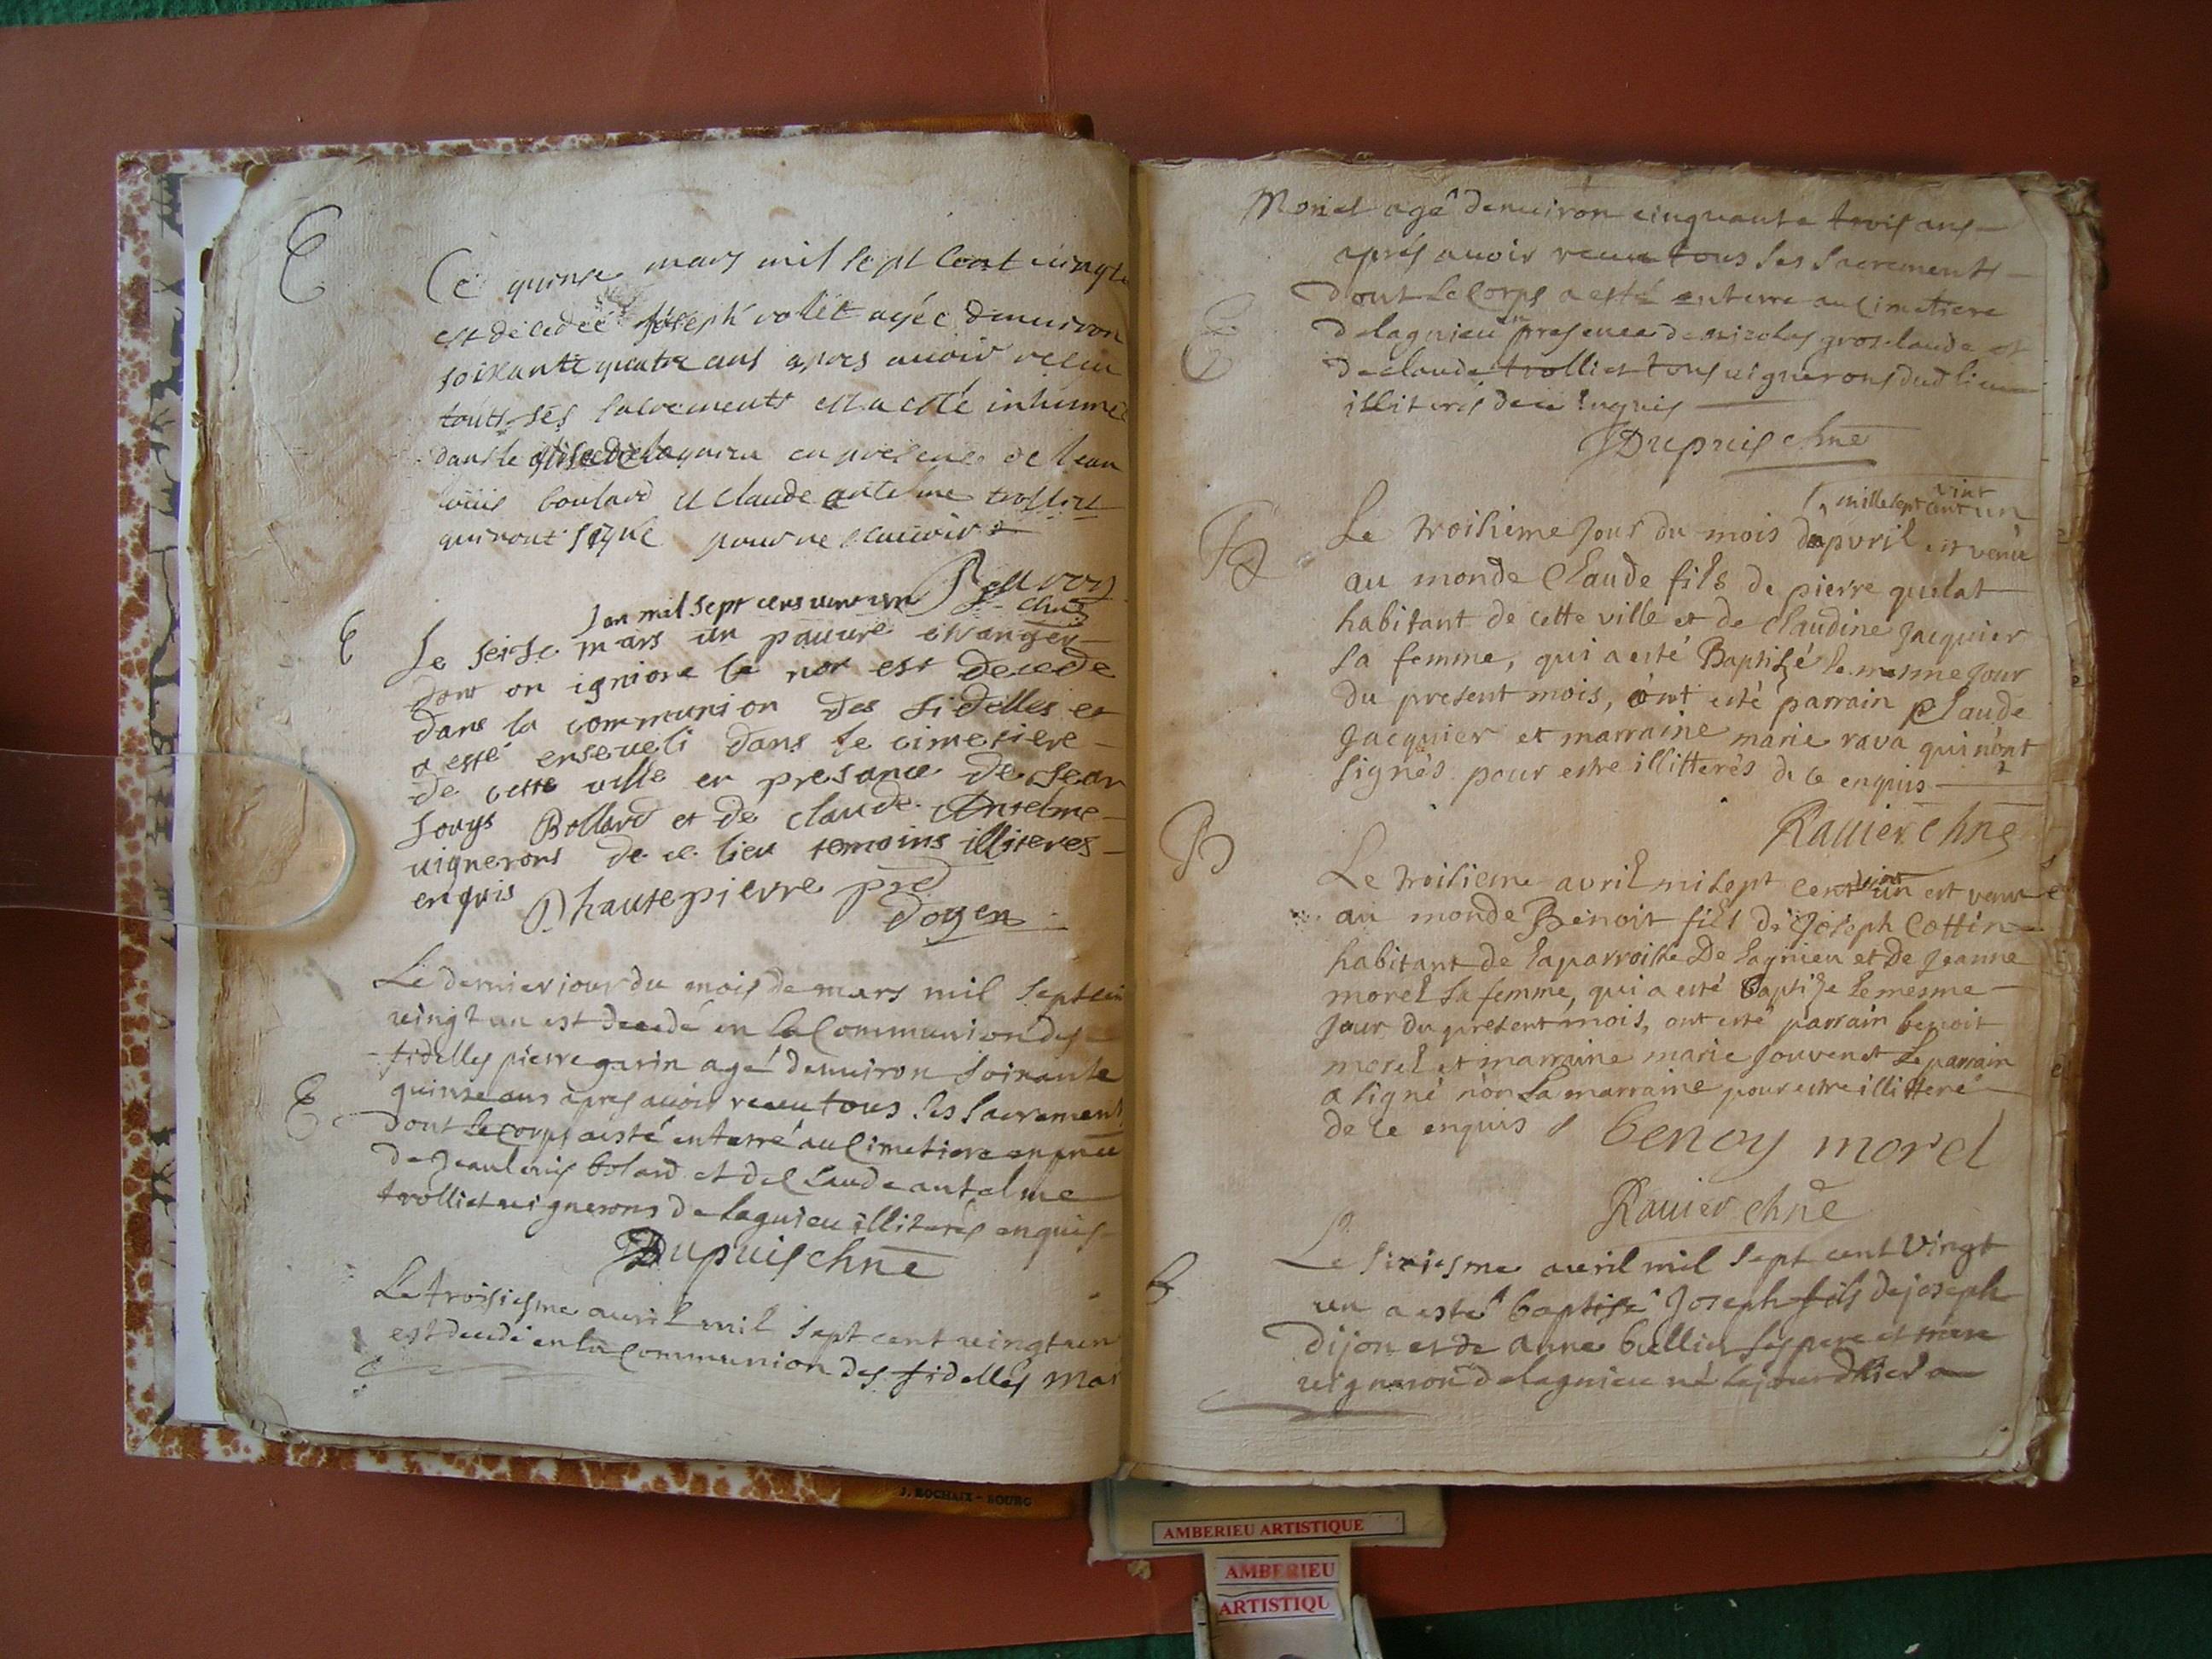 E
Ce quinse mars mil sept cent vingt
est decedeé Joseph vollet agée denuiron
soixante quatre ans apres auoir reseu
touts ses sacrements et a esté inhumé
dans le de lagnieu en presence de Jean
louis boulard et claude antelme trolliet
qui nont signé pour ne scauoir
chne
E
l an mil sept cens vint un
Le seise mars un pauure etranger
dont on igniore le non est decede
dans la communion des fidelles et
a esté enseueli dans le cimetiere
de cette ville en presance de Jean
Louys Bollard et de claude Anselme
uignerons de ce lieu temoins illiteres
enquis
Dhautepierre pre
doyen
Le dernier jour du mois de mars mil sept cen
vingt un est decedé en la Communion des
fidelles pierre garin agé denuiron soixante
quinse ans apres auoir receu tous ses sacrement
E
dont le corps a esté enterré au Cimetiere en pnce
de Jean louis bolard et de Claude antelme
trolliet uignerons de lagnieu illiterés enquis
Dupuis chne
Le troisiesme auril mil sept cent uingt un
est decedé en la Communion des fidelles
Moriel agé denuiron cinquante trois ans
aprés auoir receu tous ses sacrements
dont le Corps a esté enterre au Cimetiere
de lagnieu en presence de nicolas groslaude et
de claude trolliet tous uignerons dud lieu
illiterés de ce enquis
Dupuis chne
mille sept cent vint un
B
Le troisieme Jour du mois dapvril est venu
au monde Claude fils de pierre quilat
habitant de cette ville et de Claudine Jacquier
sa femme, qui a esté Baptisé le mesme Jour
du present mois, ont esté parrain Claude
Jacquier et marraine marie rava qui n'ont
signés pour estre illitterés de ce enquis
Rauier chne
B
Le troisieme avril mil sept cent vint un est venu
au monde Benoit fils de Joseph Cottin
habitant de la parroisse De lagnieu et de Jeanne
morel sa femme, qui a esté Baptise le mesme
Jour du present mois, ont esté parrain benoit
morel et marraine marie Jouvenet le parrain
a signé non la marraine pour estre illitteré
de ce enquis
benoy morel
Rauier chne
B
Le sixiesme auril mil sept cent vingt
un a esté baptisé Joseph fils de joseph
dijon et de anne bullier ses pere et mere
uigneron de lagnieu né le jour dhier
J. ROCHAIX - BOURG
AMBERIEU ARTISTIQUE
AMBERIEU
ARTISTIQU